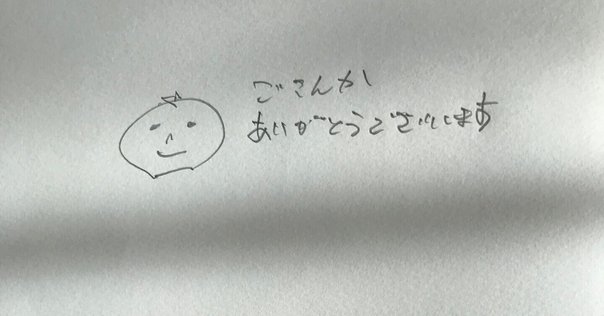 ごさんか
ありがとうございます